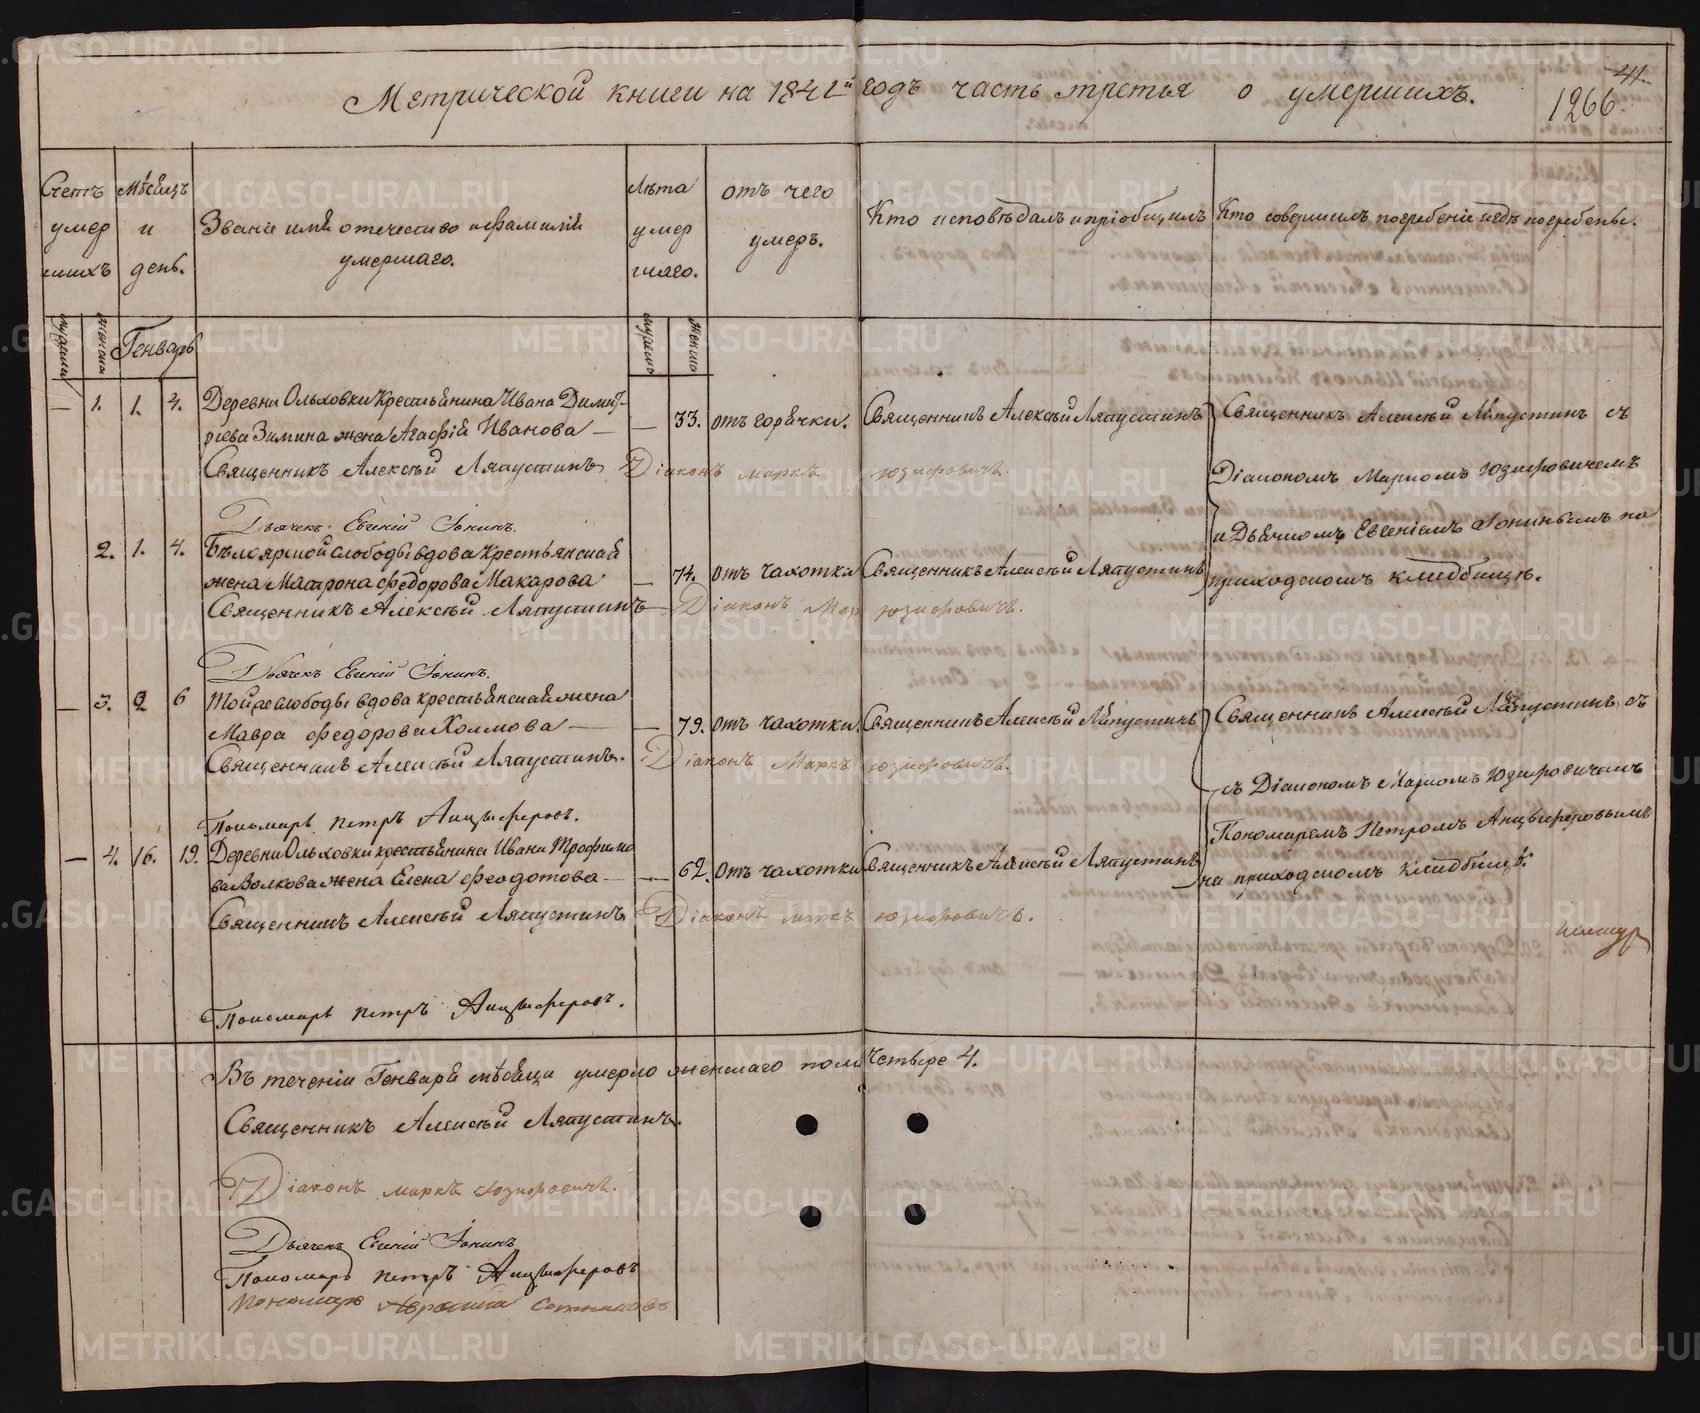 Метрической книги на 1842й годъ часть третья о умершихъ.
41.
1266.
Счетъ умер шихъ
Мѣсяцъ и день.
Званіе имя отечество и фамилія
умершаго.
Лѣта умер шаго.
отъ чего умеръ.
Кто исповѣдалъ и пріобщилъ
Кто совершилъ погребеніе и гдѣ погребены.
мужеска
женска
Генварь
мужеска
женска
— 1. 1. 4. Деревни Ольховки Крестьянина Ивана Димит-
ріева Зимина жена Агафія Иванова — — 33. отъ горячки. Священникъ Алексѣй Ляпустинъ Священникъ Алексѣй Ляпустинъ съ
Священникъ Алексѣй Ляпустинъ Діаконъ Маркъ Юзефовичъ. Діакономъ Маркомъ Юзефовичемъ
Дьячекъ Евгеній Іонинъ. и Дьячкомъ Евгеніемъ Іонинымъ на
2. 1. 4. Бѣлоярской слободы вдова крестьянская
жена Матрона Федорова Макарова — 74. отъ чахотки Священникъ Алексѣй Ляпустинъ приходскомъ кладбищѣ.
Священникъ Алексѣй Ляпустинъ Діаконъ Мар Юзефовичъ.
Дьячекъ Евгеній Іонинъ.
— 3. 2 6 Той же слободы вдова крестьянская жена
Мавра Федорова — — 79. отъ чахотки. Священникъ Алексѣй Ляпустинъ Священникъ Алексѣй Ляпустинъ съ
Священникъ Алексѣй Ляпустинъ. Діаконъ Маркъ Юзефовичъ.
съ Діакономъ Маркомъ Юзефовичемъ
Пономарь Петръ Анцыферовъ. Пономаремъ Петромъ Анцыферовымъ
— 4. 16. 19. Деревни Ольховки крестьянина Ивана Трофимо
ва Волкова жена Елена Феодотова — — 62. отъ чахотки Священникъ Алексѣй Ляпустинъ на приходскомъ кладбищѣ.
Священникъ Алексѣй Ляпустинъ Діаконъ Маркъ Юзефовичъ.
Пономарь Петръ Анцыферовъ.
Въ теченіи Генваря мѣсяца умерло женскаго пола Четыре 4.
Священникъ Алексѣй Ляпустинъ.
Діаконъ Маркъ Юзефовичъ.
Дьячекъ Евгеній Іонинъ
Пономарь Петръ Анцыферовъ
Пономарь
METRIKI.GASO-URAL.RU